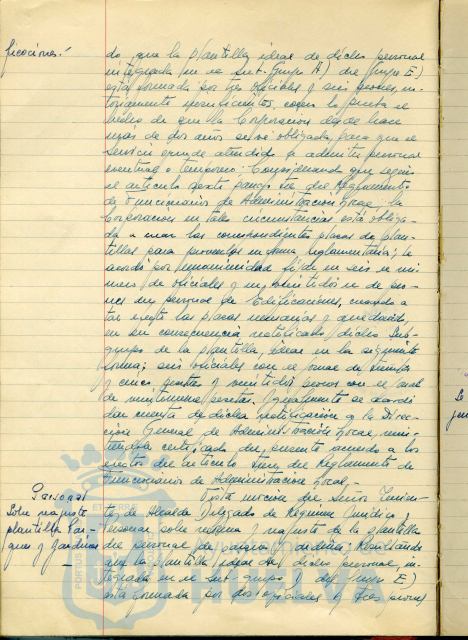 ficaciones.-
do que la plantilla ideal de dicho personal
integrada en el sub-Grupo A) del Grupo E)
está formada por tres oficiales y seis peones,
insuficientes, como lo prueba el
hecho de que la Corporación desde hace
más de dos años se ve obligada, para que el
servicio quede atendido a admitir personal
eventual o temporero; Considerando que según
el artículo del Reglamento
de Funcionarios de Administración Local, la
Corporación en tales circunstancias está obliga-
da a crear las correspondientes plazas de plan-
tillas para proveerlas en forma reglamentaria; se
acordó por unanimidad fijar en seis el nú-
mero de oficiales y en veintidós el de peo-
nes del personal de Edificaciones, creando a
tal efecto las plazas necesarias y quedando
en su consecuencia rectificado dicho Sub-
grupo de la plantilla ideal en la siguiente
forma: seis oficiales con el jornal de
y cinco pesetas y veintidós peones con el jornal
de pesetas. Igualmente se acordó
dar cuenta de dicha rectificación a la Direc-
ción General de Administración Local, remi-
tiéndole certificado del presente acuerdo a los
efectos del artículo del Reglamento de
Funcionarios de Administración Local.-
Personal
Sobre reajuste
plantilla Par-
ques y Jardines
Vista moción del Señor Tenien-
te de Alcalde Delegado de Régimen Jurídico y
Personal sobre reforma y reajuste de la plantilla
del personal de ; Resultando
que la plantilla ideal de dicho personal, in-
tegrada en el sub-grupo del Grupo E)
está formada por dos oficiales y tres peones